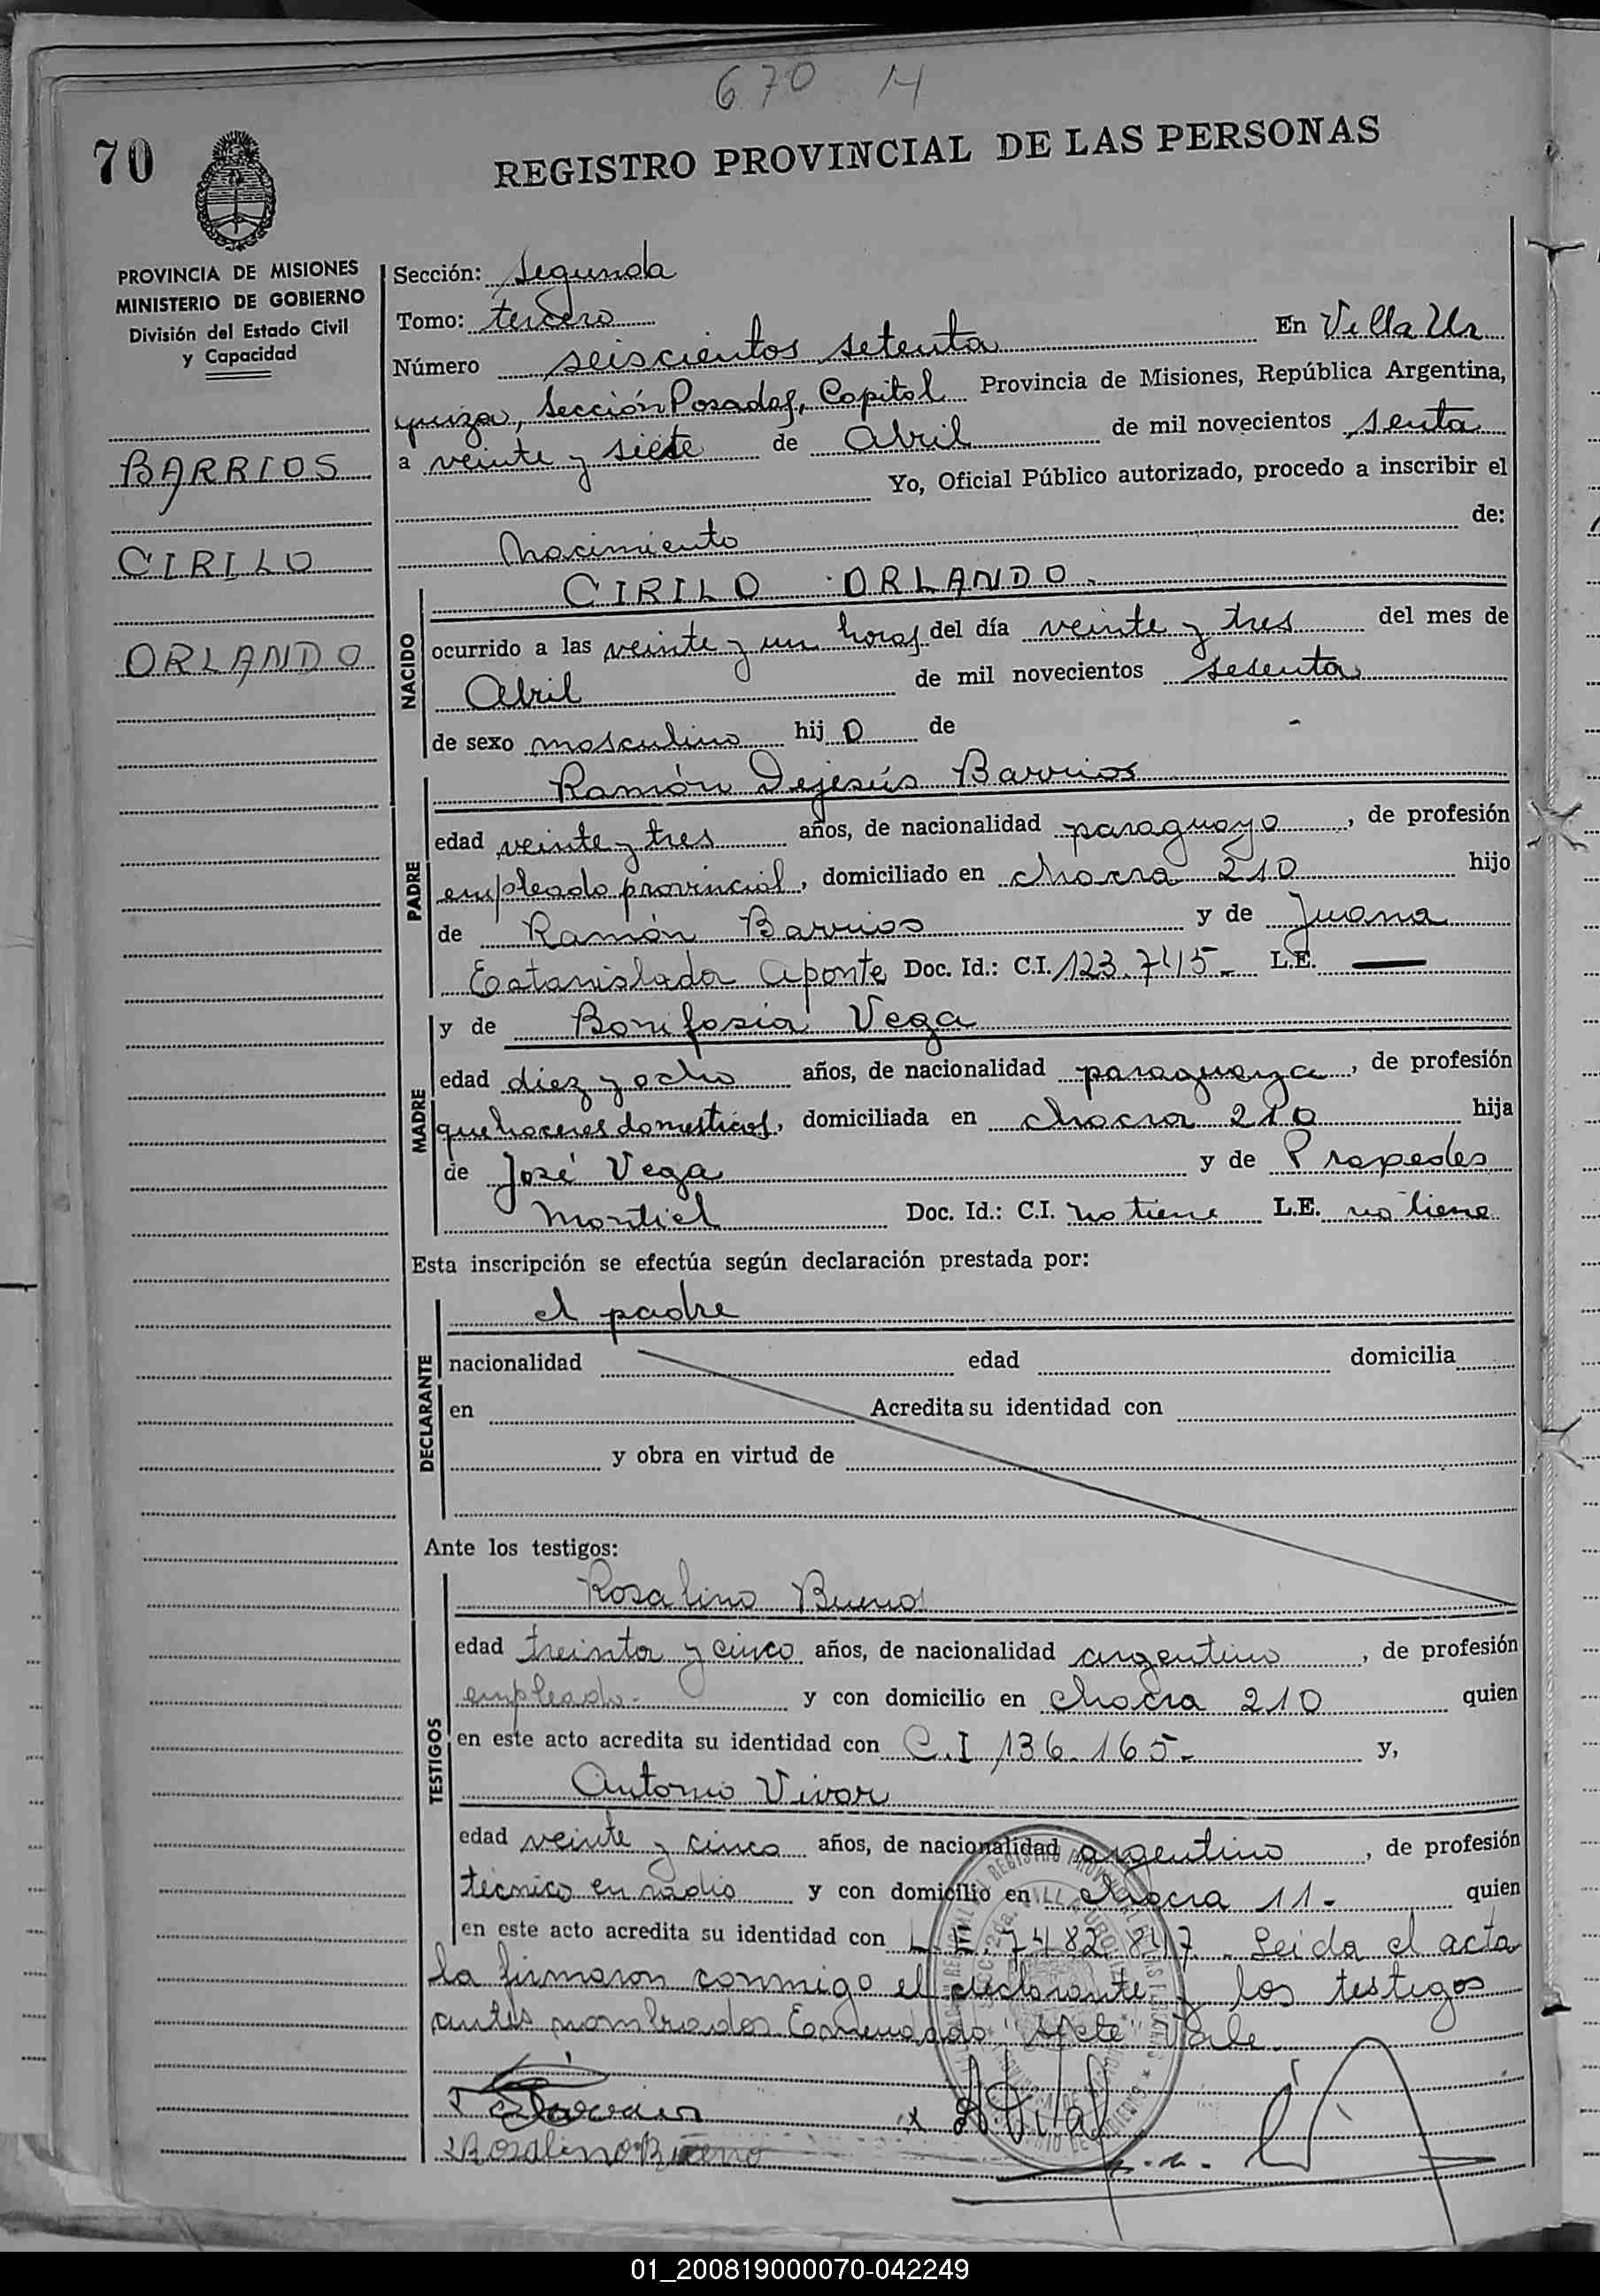 670 M
70
REGISTRO PROVINCIAL DE LAS PERSONAS
PROVINCIA DE MISIONES
MINISTERIO DE GOBIERNO
División del Estado Civil
y Capacidad
BARRIOS
CIRILO
ORLANDO
Sección: Segunda
Tomo: tercero
Número seiscientos setenta En Villa Ur
quiza, Sección Posadas, Capital Provincia de Misiones, República Argentina,
a veinte y siete de Abril de mil novecientos senta
Yo, Oficial Público autorizado, procedo a inscribir el
Nacimiento de:
NACIDO
CIRILO ORLANDO.
ocurrido a las veinte y un horas del día veinte y tres del mes de
Abril de mil novecientos sesenta
de sexo masculino hijo de
PADRE
Ramón Dejesús Barrios
edad veinte y tres años, de nacionalidad paraguayo, de profesión
empleado provincial, domiciliado en chacra 210 hijo
de Ramón Barrios y de Juana
Estanislada Aponte Doc. Id.: C.I. 123.745- L.E. —
MADRE
y de Bonifasia Vega
edad diez y ocho años, de nacionalidad paraguaya, de profesión
quehaceres domesticos, domiciliada en chacra 210 hija
de José Vega y de Prapedes
Montiel Doc. Id.: C.I. no tiene L.E. no tiene
Esta inscripción se efectúa según declaración prestada por:
DECLARANTE
el padre
nacionalidad edad domicilia
en Acredita su identidad con
y obra en virtud de
Ante los testigos:
TESTIGOS
Rosalino Bueno
edad treinta y cinco años, de nacionalidad argentino, de profesión
empleado- y con domicilio en chacra 210 quien
en este acto acredita su identidad con C.I 136.165- y,
Antonio Vivar
edad veinte y cinco años, de nacionalidad argentino, de profesión
técnico en radio y con domicilio en chacra 11- quien
en este acto acredita su identidad con L.E. 7482847. Leida el acta
la firmaron conmigo el declarante y los testigos
antes nombrados. Enmendado "siete" Vale.
Rosalino Bueno
01_200819000070-042249